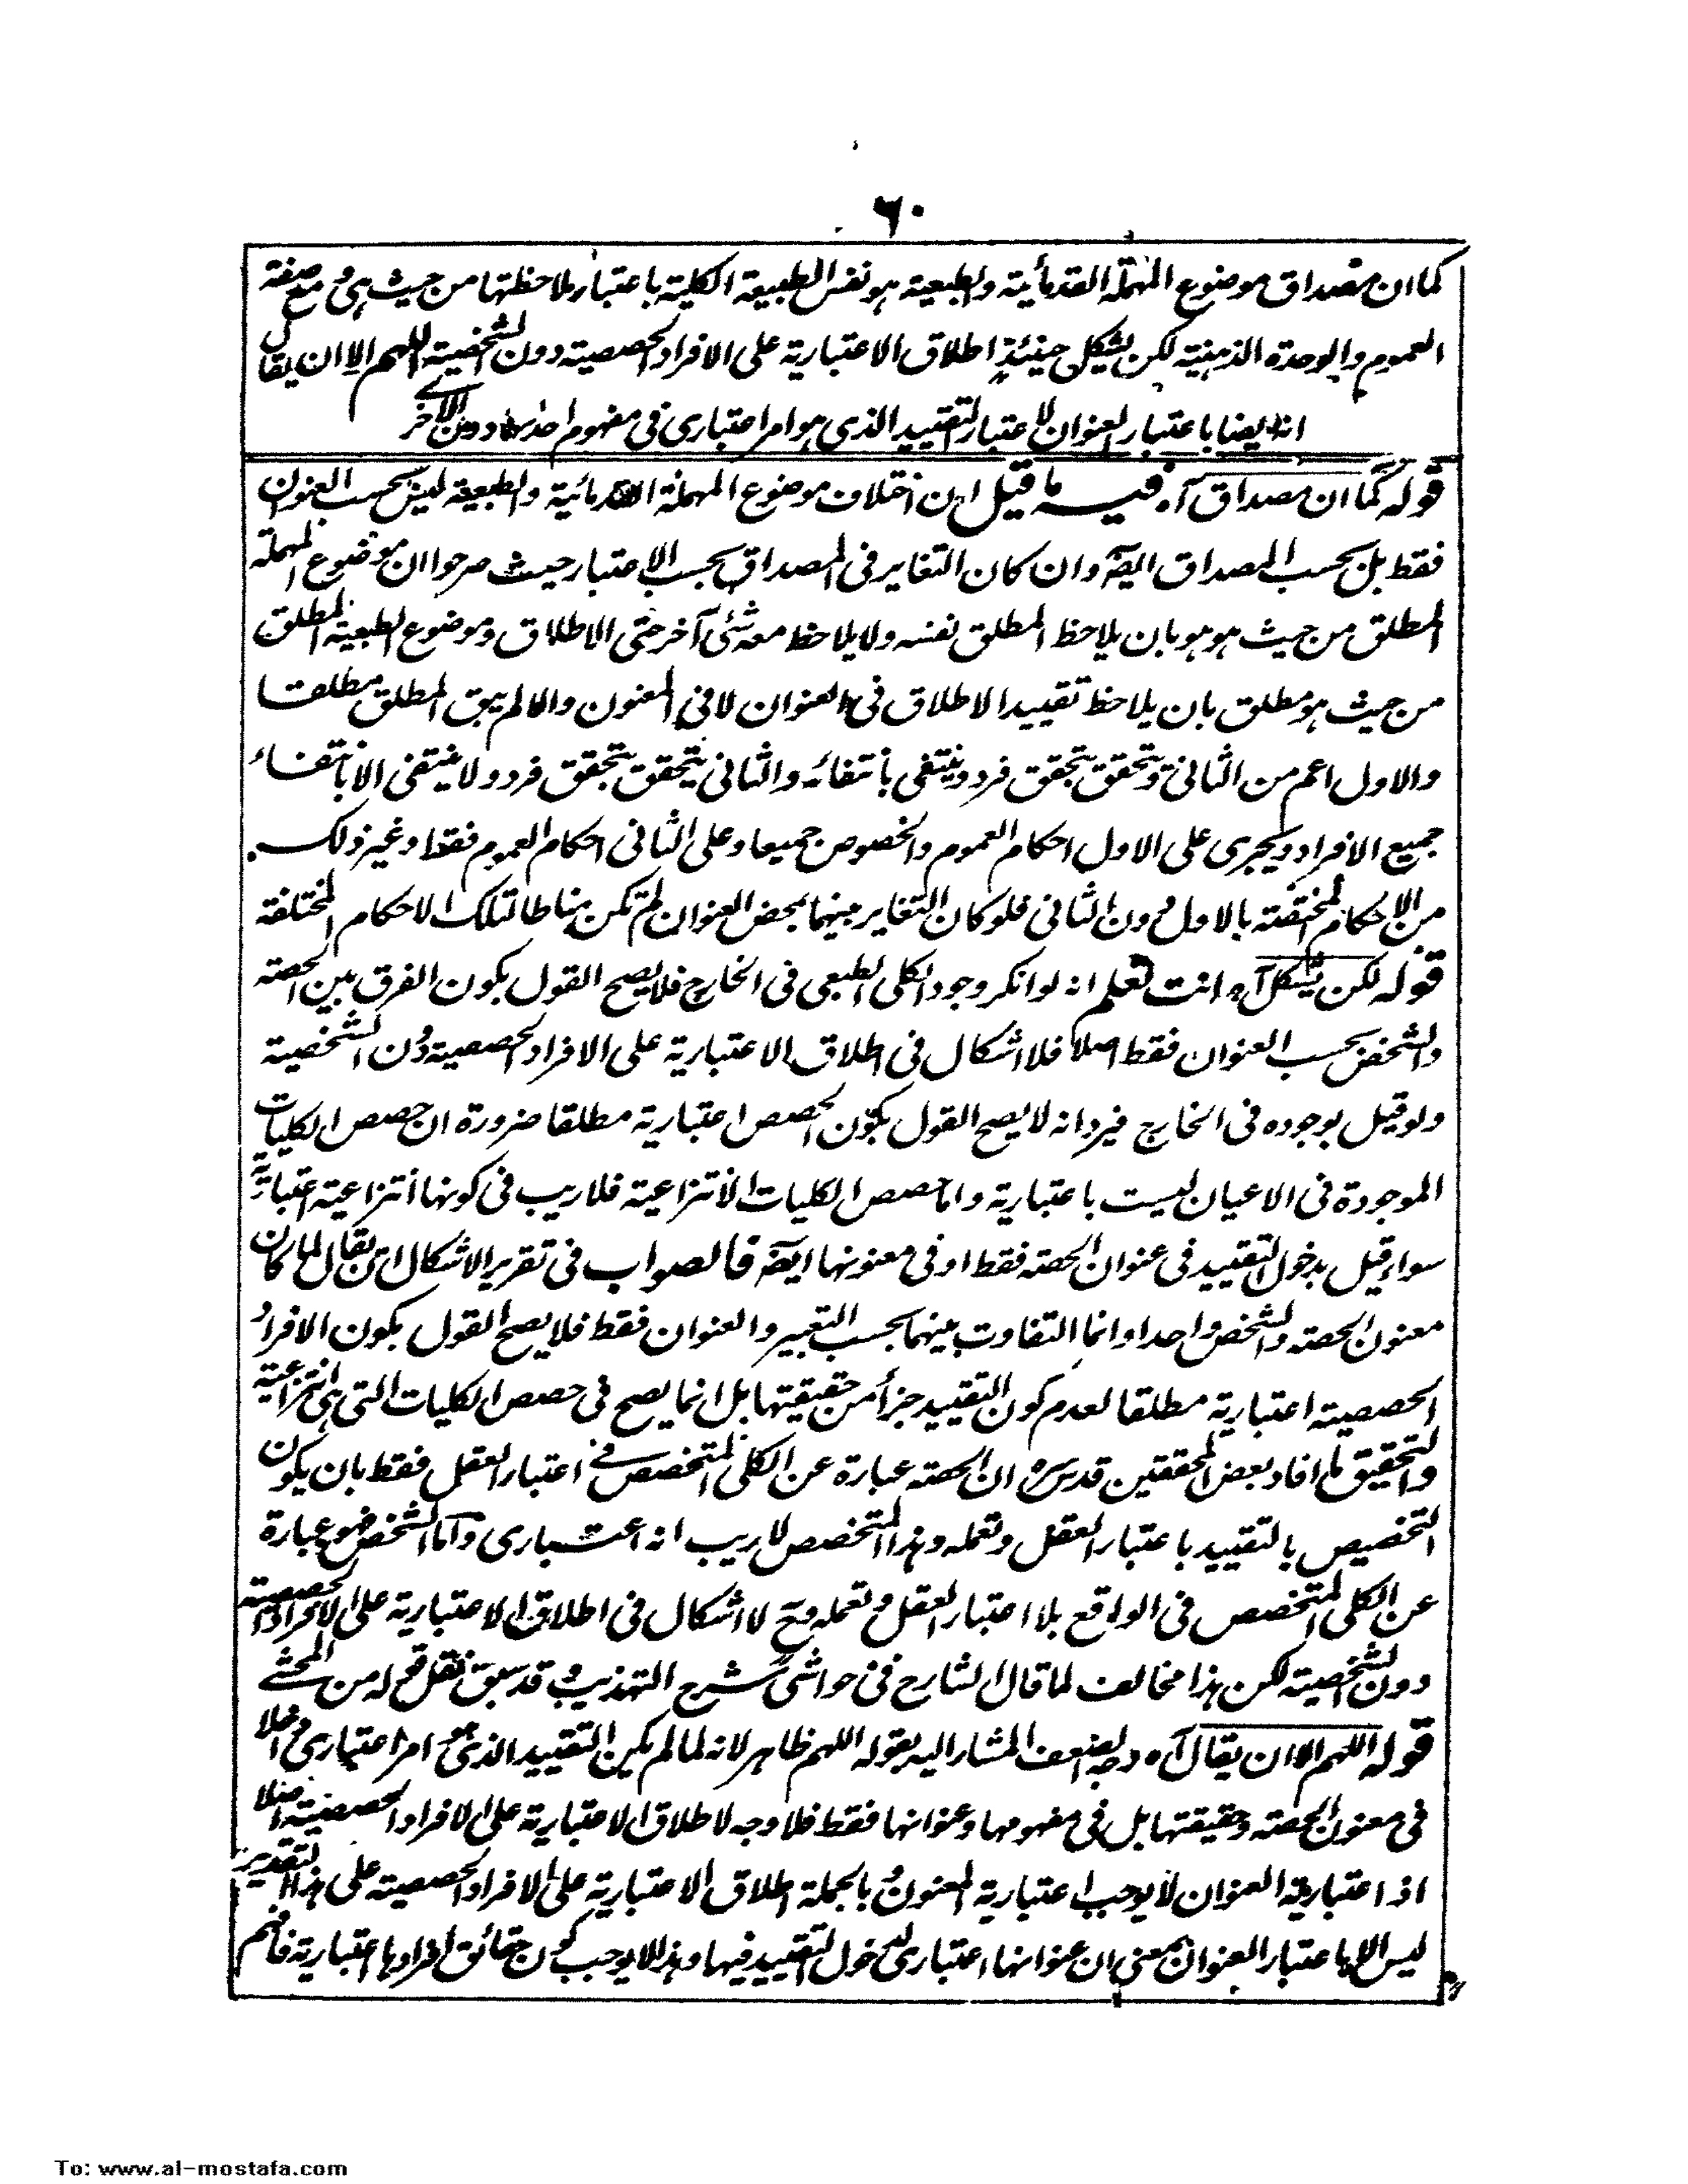 ٦٠
كما ان مصداق موضوع المهملة القدمائية والطبعية هو نفس الطبيعة الكلية باعتبار ملاحظتها من حيث هى و مع صفة
العموم والوحدة الذهنية لكن يشكل حينئذ اطلاق الاعتبارية على الافراد الحصصية دون الشخصية اللهم الا ان يقال
انه ايضا باعتبار العنوان لاعتبار التقييد الذى هو امر اعتبارى فى مفهوم احدهما دون الآخر
قوله كما ان مصداق آه فيه ما قيل ان اختلاف موضوع المهملة القدمائية والطبعية ليس بحسب العنوان
فقط بل بحسب المصداق ايضه وان كان التغاير فى المصداق بحسب الاعتبار حيث صرحوا ان موضوع المهملة
المطلق من حيث هو هو بان يلاحظ المطلق نفسه ولا يلاحظ معه شئ آخر حتى الاطلاق وموضوع الطبعية المطلق
من حيث هو مطلق بان يلاحظ تقييد الاطلاق فى العنوان لا فى المعنون والا لم يبق المطلق مطلقا
والاول اعم من الثانى ويتحقق بتحقق فرد وينتفى بانتفائه والثانى يتحقق بتحقق فرد ولا ينتفى الا بانتفاء
جميع الافراد ويجرى على الاول احكام العموم والخصوص جميعا وعلى الثانى احكام العموم فقط وغير ذلك
من الاحكام المختصة بالاول دون الثانى فلو كان التغاير بينهما بمحض العنوان لم تكن مناطا لتلك الاحكام المختلفة
قوله لكن يشكل آه انت تعلم انه لو انكر وجود الكلى الطبعى فى الخارج فلا يصح القول بكون الفرق بين الحصة
والشخص بحسب العنوان فقط اصلا فلا اشكال فى اطلاق الاعتبارية على الافراد الحصصية دون الشخصية
ولو قيل بوجوده فى الخارج فيرد انه لا يصح القول بكون الحصص اعتبارية مطلقا ضرورة ان حصص الكليات
الموجودة فى الاعيان ليست باعتبارية واما حصص الكليات الانتزاعية فلا ريب فى كونها انتزاعية اعتبارية
سواء قيل بدخول التقييد فى عنوان الحصة فقط او فى معنونها ايضه فالصواب فى تقرير الاشكال ان يقال لما كان
معنون الحصة والشخص واحدا وانما التفاوت بينهما بحسب التعبير والعنوان فقط فلا يصح القول بكون الافراد
الحصصية اعتبارية مطلقا لعدم كون التقييد جزأ من حقيقتها بل انما يصح فى حصص الكليات التى هى انتزاعية
والتحقيق ما افاد بعض المحققين قدس سره ان الحصة عبارة عن الكلى المتخصص فى اعتبار العقل فقط بان يكون
التخصيص بالتقييد باعتبار العقل وتعمله وهذا المتخصص لا ريب انه اعتبارى واما الشخص فهو عبارة
عن الكلى المتخصص فى الواقع بلا اعتبار العقل وتعمله وح لا اشكال فى اطلاق الاعتبارية على الافراد الحصصية
دون الشخصية لكن هذا مخالف لما قال الشارح فى حواشى شرح التهذيب وقد سبق نقل قوله من المحشى
قوله اللهم الا ان يقال آه وجه الضعف المشار اليه بقوله اللهم ظاهر لانه لما لم يكن التقييد الذى هو امر اعتبارى داخلا
فى معنون الحصة وحقيقتها بل فى مفهومها وعنوانها فقط فلا وجه لاطلاق الاعتبارية على الافراد الحصصية اصلا
اذ اعتبارية العنوان لا يوجب اعتبارية المعنون وبالجملة اطلاق الاعتبارية على الافراد الحصصية على هذا التقدير
ليس الا باعتبار العنوان بمعنى ان عنوانها اعتبارى لدخول التقييد فيها وهذا لا يوجب كون حقائق افرادها اعتبارية فافهم
To: www.al-mostafa.com